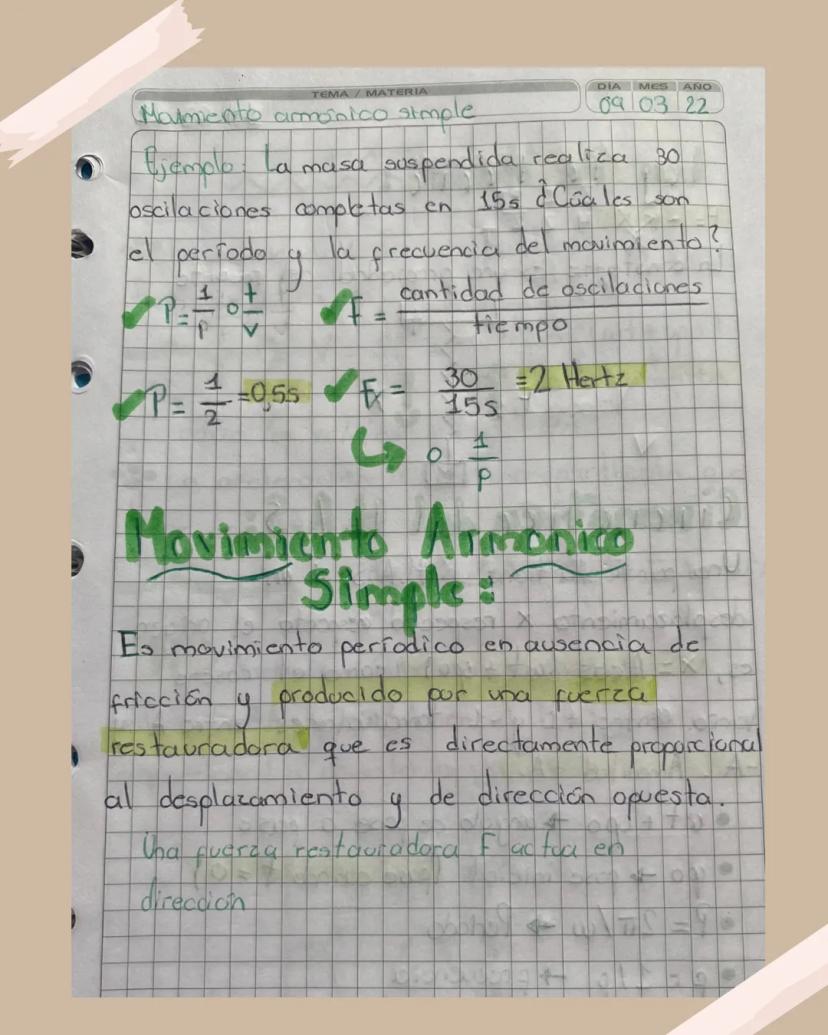 TEMA / MATERIA
DIA MES AÑO
Movimiento armónico simple
09 03 22
Ejemplo: La masa suspendida realiza 30
oscilaciones completas en 15s ¿Cúales son
el período y la frecuencia del movimiento?
P= 1/P o t/v
F = cantidad de oscilaciones / tiempo
P= 1/2 =0,5s
Fx= 30/15s =2 Hertz
o 1/P
Movimiento Armonico
Simple:
Es movimiento períodico en ausencia de
fricción y producido por una fuerza
restauradora que es directamente proporcional
al desplazamiento y de dirección opuesta.
Una fuerza restauradora F actúa en
dirección